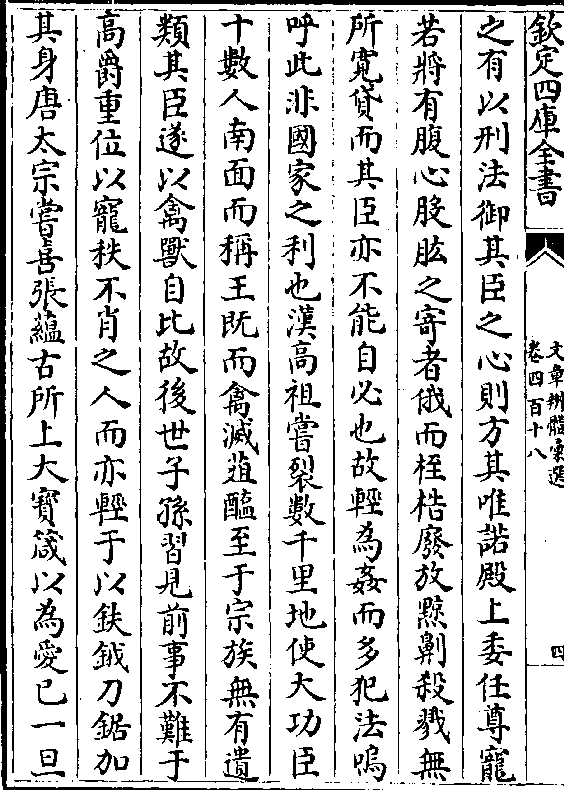 欽定四庫全書
文章辨體彙選
卷四百十八
四
之有以刑法御其臣之心則方其唯諾殿上委任尊寵
若將有腹心股肱之寄者俄而桎梏廢放黥劓殺戮無
所寛貸而其臣亦不能自必也故輕為姦而多犯法嗚
呼此非國家之利也漢高祖嘗裂數千里地使大功臣
十數人南面而稱王既而禽滅葅醢至于宗族無有遺
類其臣遂以禽獸自比故後世子孫習見前事不難于
高爵重位以寵秩不肖之人而亦輕于以鈇鉞刀鋸加
其身唐太宗嘗喜張蘊古所上大寶箴以為愛已一旦